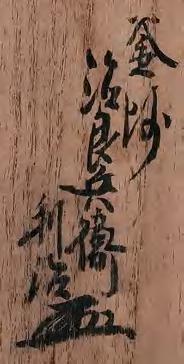 釜師
治良兵衛
利治